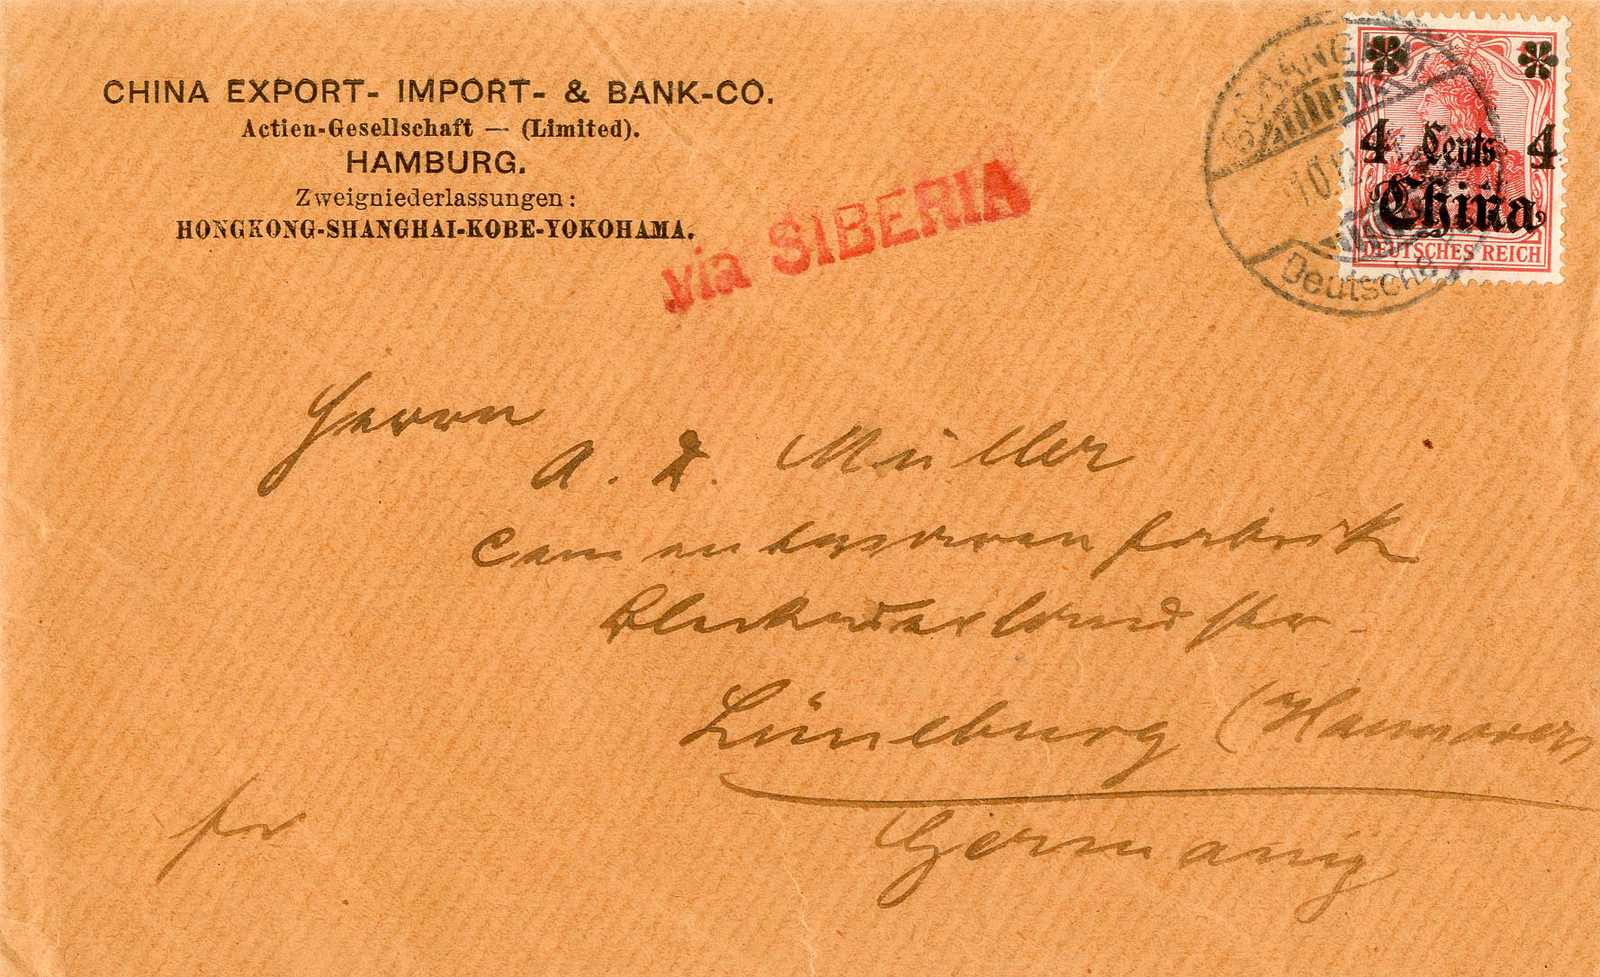 CHINA EXPORT- IMPORT- & BANK-CO.
Actien-Gesellschaft — (Limited).
HAMBURG.
Zweigniederlassungen:
HONGKONG-SHANGHAI-KOBE-YOKOHAMA.
via SIBERIA
SCHANGHAI
Deutsche
4 Cents 4
China
DEUTSCHES REICH
Herrn
A. D. Müller
Cementwarenfabrik
Lüneburg (Hannover)
Germany